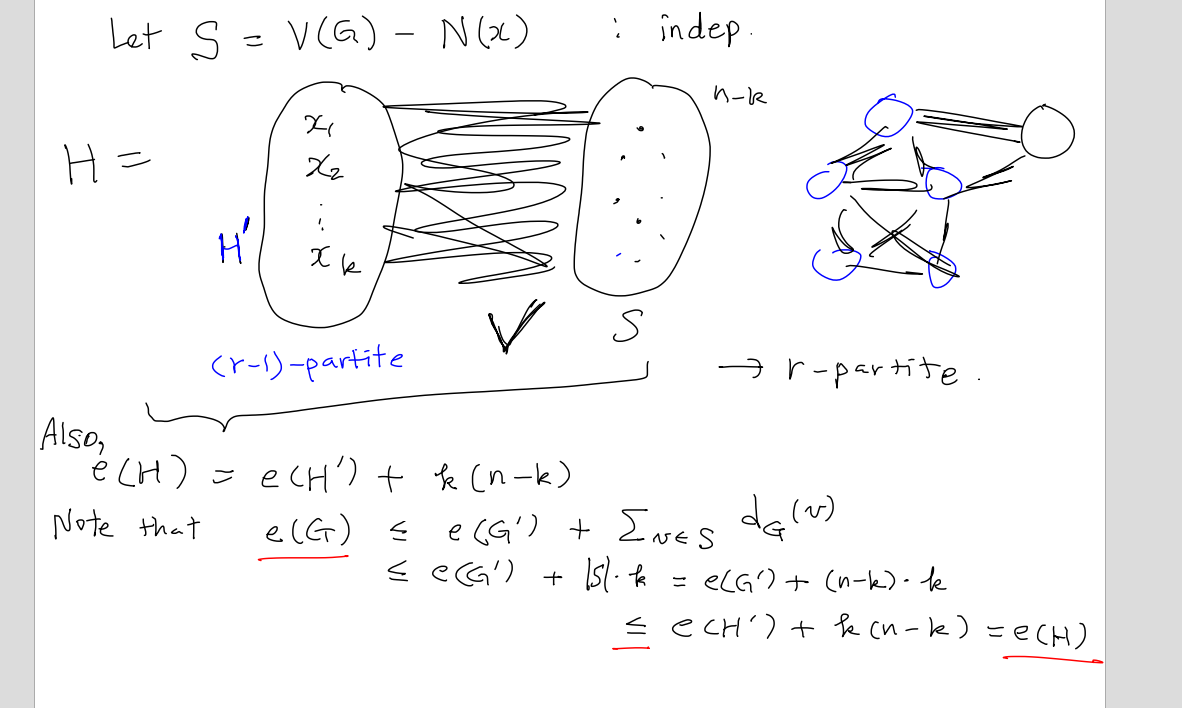 Let S = V(G) - N(x) : indep.
n-k
H =
x₁
x₂
⋮
x_k
H'
S
(r-1)-partite
→ r-partite.
Also,
e(H) = e(H') + k(n-k)
Note that e(G) ≤ e(G') + Σ_{v∈S} d_G(v)
≤ e(G') + |S|·k = e(G') + (n-k)·k
≤ e(H') + k(n-k) = e(H)